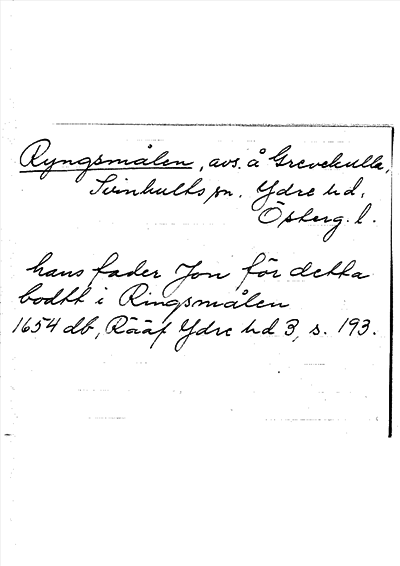 Ryngsmålen, avs. å Grevekulla,
Svinhults sn. Ydre hd.
Östergl.
hans fader Jon för detta
bodtt i Ringsmålen
1654 db, Rääf Ydre hd 3, s. 193.